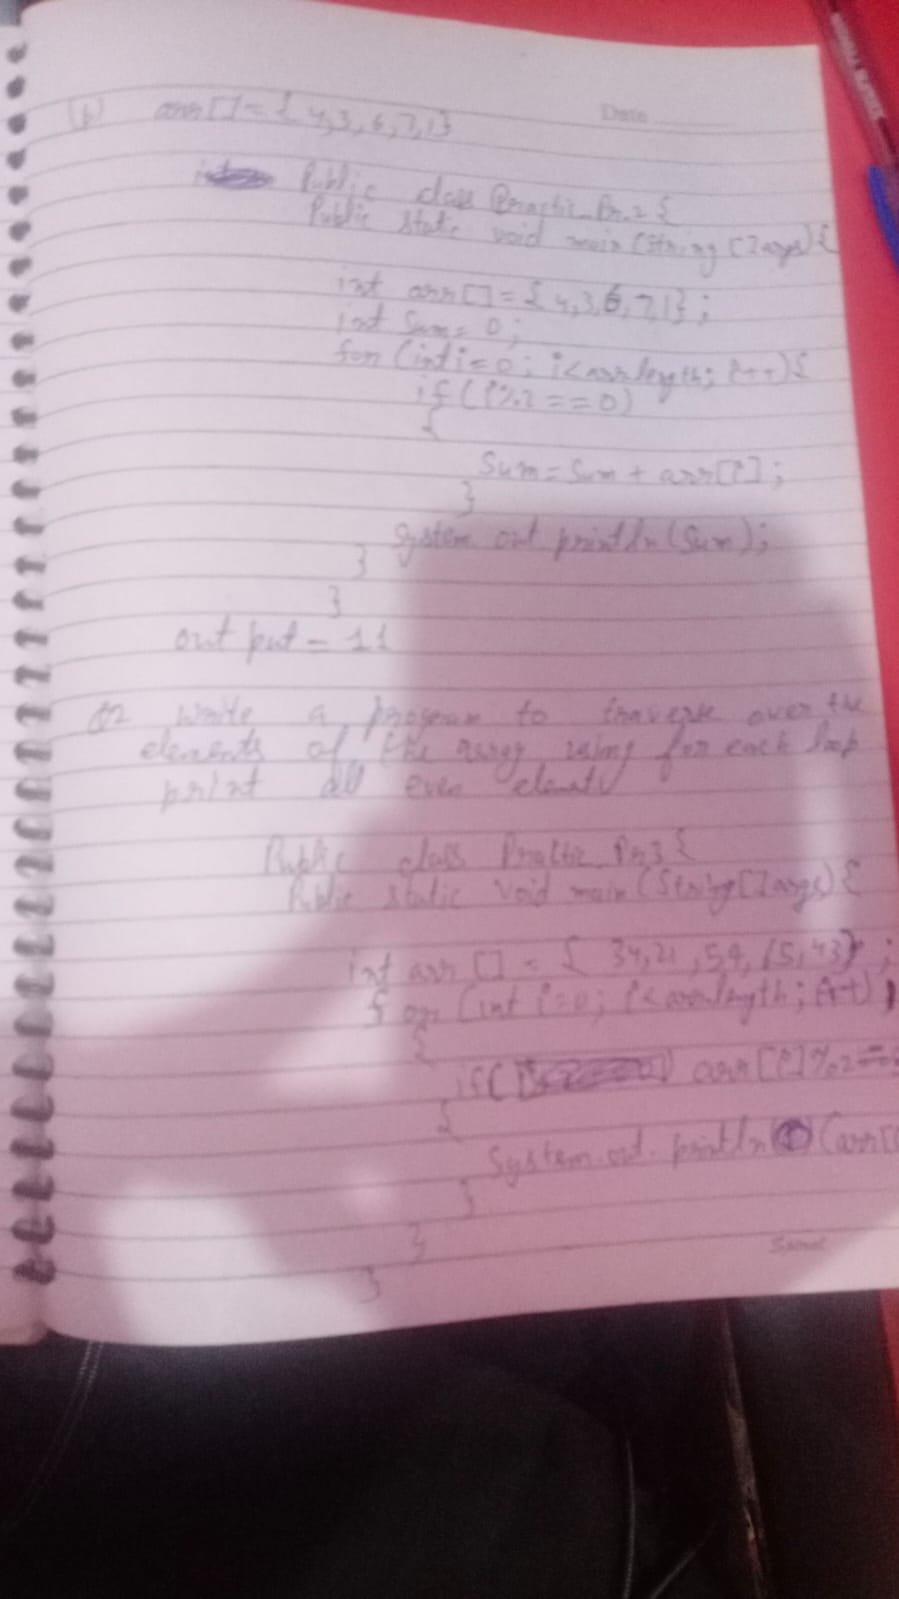 Date
(1) arr[] = { 4,3,6,7,1}
Public class Practic_Pr.2 {
Public static void main (String []args) {
int arr[] = { 4,3,6,7,1} ;
int Sum = 0 ;
for (int i = 0 ; i < arr.length ; i++) {
if (i%2 == 0)
{
Sum = Sum + arr[i] ;
}
System out println (Sum) ;
}
}
out put = 11
Q2 Write a program to traverse over the
elements of the array using for each loop
print all even
Public class Practic_Pr3 {
Public static void main (String[]args) {
int arr [] = { 34,21,54,65,43} ;
for (int i=0 ; i<arr.length ; i++)
{
if( arr[i]%2==
{
System.out.println (arr[
}
}
}